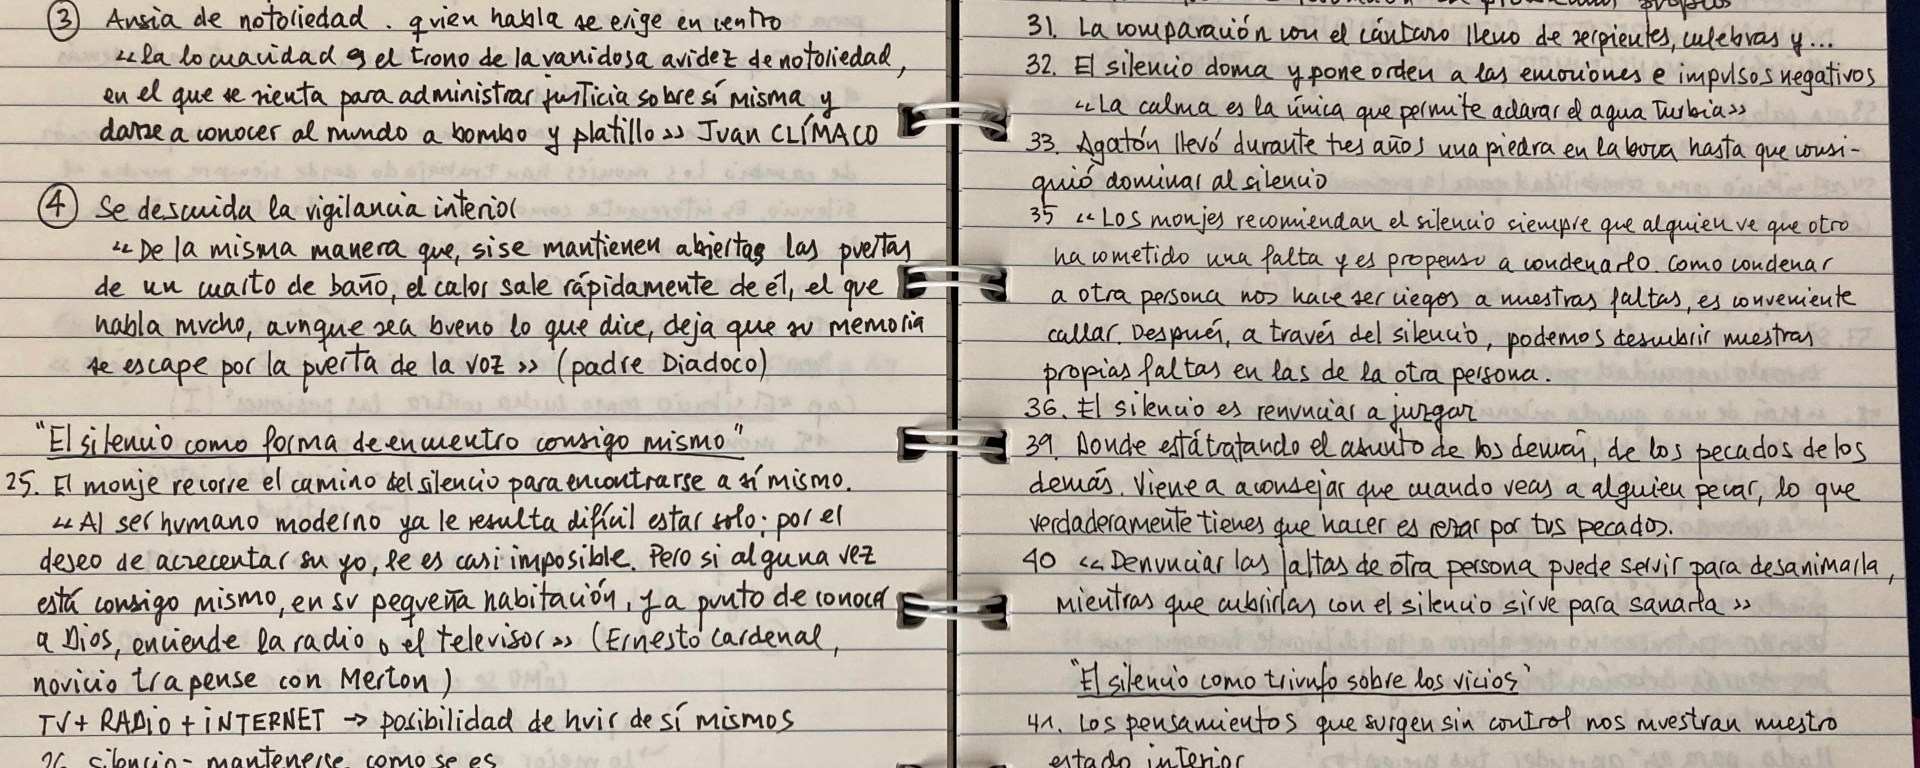 ③ Ansia de notoriedad. quien habla se erige en centro
«La locuacidad es el trono de la vanidosa avidez de notoriedad,
en el que se sienta para administrar justicia sobre sí misma y
darse a conocer al mundo a bombo y platillo» Juan CLÍMACO
④ Se descuida la vigilancia interior
«De la misma manera que, si se mantienen abiertas las puertas
de un cuarto de baño, el calor sale rápidamente de él, el que
habla mucho, aunque sea bueno lo que dice, deja que su memoria
se escape por la puerta de la voz» (padre Diadoco)
"El silencio como forma de encuentro consigo mismo"
25. El monje recorre el camino del silencio para encontrarse a sí mismo.
«Al ser humano moderno ya le resulta difícil estar solo; por el
deseo de acrecentar su yo, le es casi imposible. Pero si alguna vez
está consigo mismo, en su pequeña habitación, y a punto de conocer
a Dios, enciende la radio o el televisor» (Ernesto Cardenal,
novicio trapense con Merton)
TV + RADIO + INTERNET → posibilidad de huir de sí mismos
26. silencio = mantenerse como se es
31. La comparación con el cántaro lleno de serpientes, culebras y...
32. El silencio doma y pone orden a las emociones e impulsos negativos
«La calma es la única que permite aclarar el agua turbia»
33. Agatón llevó durante tres años una piedra en la boca hasta que consi-
guió dominar al silencio
35 «Los monjes recomiendan el silencio siempre que alguien ve que otro
ha cometido una falta y es propenso a condenarlo. Como condenar
a otra persona nos hace ser ciegos a nuestras faltas, es conveniente
callar. Después, a través del silencio, podemos descubrir nuestras
propias faltas en las de la otra persona.
36. El silencio es renunciar a juzgar
39. Donde está tratando el asunto de los demás, de los pecados de los
demás. Viene a aconsejar que cuando veas a alguien pecar, lo que
verdaderamente tienes que hacer es rezar por tus pecados.
40 «Denunciar las faltas de otra persona puede servir para desanimarla,
mientras que cubrirlas con el silencio sirve para sanarla»
"El silencio como triunfo sobre los vicios"
41. Los pensamientos que surgen sin control nos muestran nuestro
estado interior